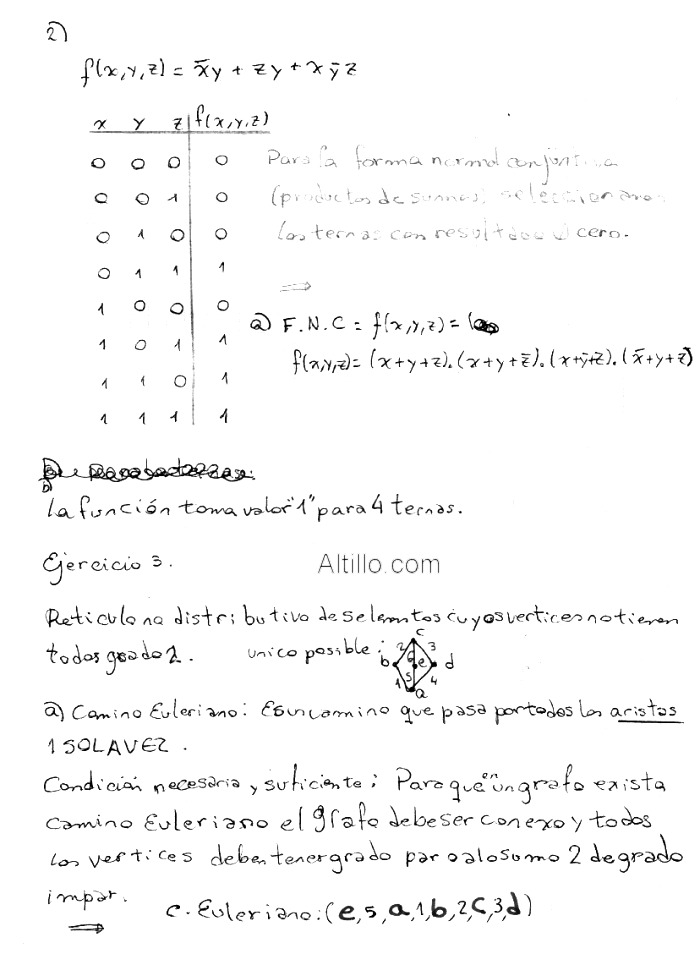 2)
f(x,y,z) = x̄y + zy + xȳz
x y z f(x,y,z)
0 0 0 0
0 0 1 0
0 1 0 0
0 1 1 1
1 0 0 0
1 0 1 1
1 1 0 1
1 1 1 1
Para la forma normal conjuntiva
(productos de sumas) seleccionamos
las ternas con resultado cero.
⇒
a) F.N.C = f(x,y,z) =
f(x,y,z) = (x+y+z).(x+y+z̄).(x+ȳ+z).(x̄+y+z)
b)
La función toma valor "1" para 4 ternas.
Ejercicio 3.
Altillo.com
Reticulo no distributivo de 5 elemntos cuyos vertices no tienen
todos grado 2. unico posible:
c
2 6 3
b e d
1 5 4
a
a) Camino Euleriano: Es un camino que pasa por todos los aristas
1 SOLA VEZ.
Condición necesaria y suficiente: Para que en un grafo exista
camino Euleriano el grafo debe ser conexo y todos
los vertices deben tener grado par o a lo sumo 2 de grado
impar.
⇒ C. Euleriano: (e,5,a,1,b,2,c,3,d)